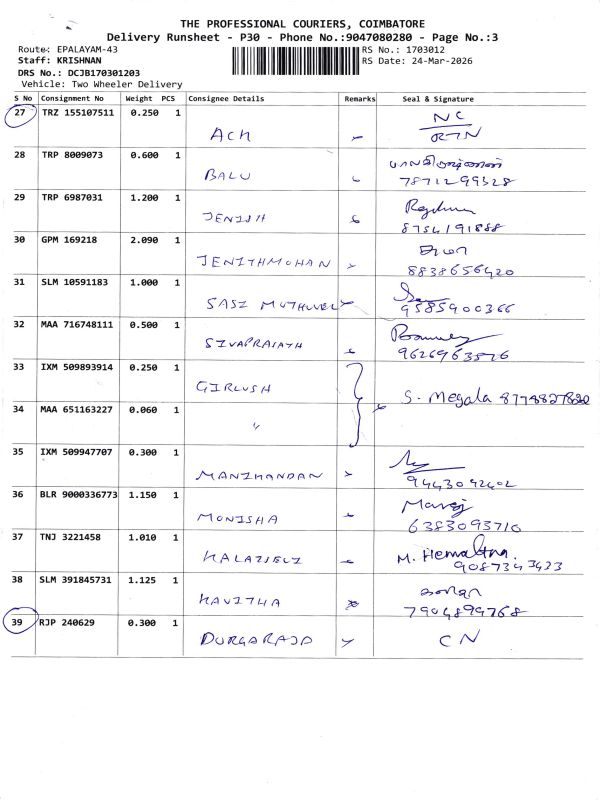 THE PROFESSIONAL COURIERS, COIMBATORE
Delivery Runsheet - P30 - Phone No.:9047080280 - Page No.:3
Route: EPALAYAM-43
RS No.: 1703012
Staff: KRISHNAN
RS Date: 24-Mar-2026
DRS No.: DCJB170301203
Vehicle: Two Wheeler Delivery
S No Consignment No Weight PCS Consignee Details Remarks Seal & Signature
27 TRZ 155107511 0.250 1 ACM NC
RTN
28 TRP 8009073 0.600 1 BALU
78712 99328
29 TRP 6987031 1.200 1 JENISH
8754191888
30 GPM 169218 2.090 1 JENITHMOHAN
8838656420
31 SLM 10591183 1.000 1 SASI MUTHUVEL
9585900366
32 MAA 716748111 0.500 1 SIVAPRAIATH
9626963576
33 IXM 509893914 0.250 1 GIRLUSH
S. Megala
34 MAA 651163227 0.060 1 〃
35 IXM 509947707 0.300 1 MANIMANDAN
9443092402
36 BLR 9000336773 1.150 1 MONISHA Manoj
6383093710
37 TNJ 3221458 1.010 1 KALAISELVI M. Hemalatha.
9087343433
38 SLM 391845731 1.125 1 KAVITHA
7904899768
39 RJP 240629 0.300 1 DURGARAJA CN